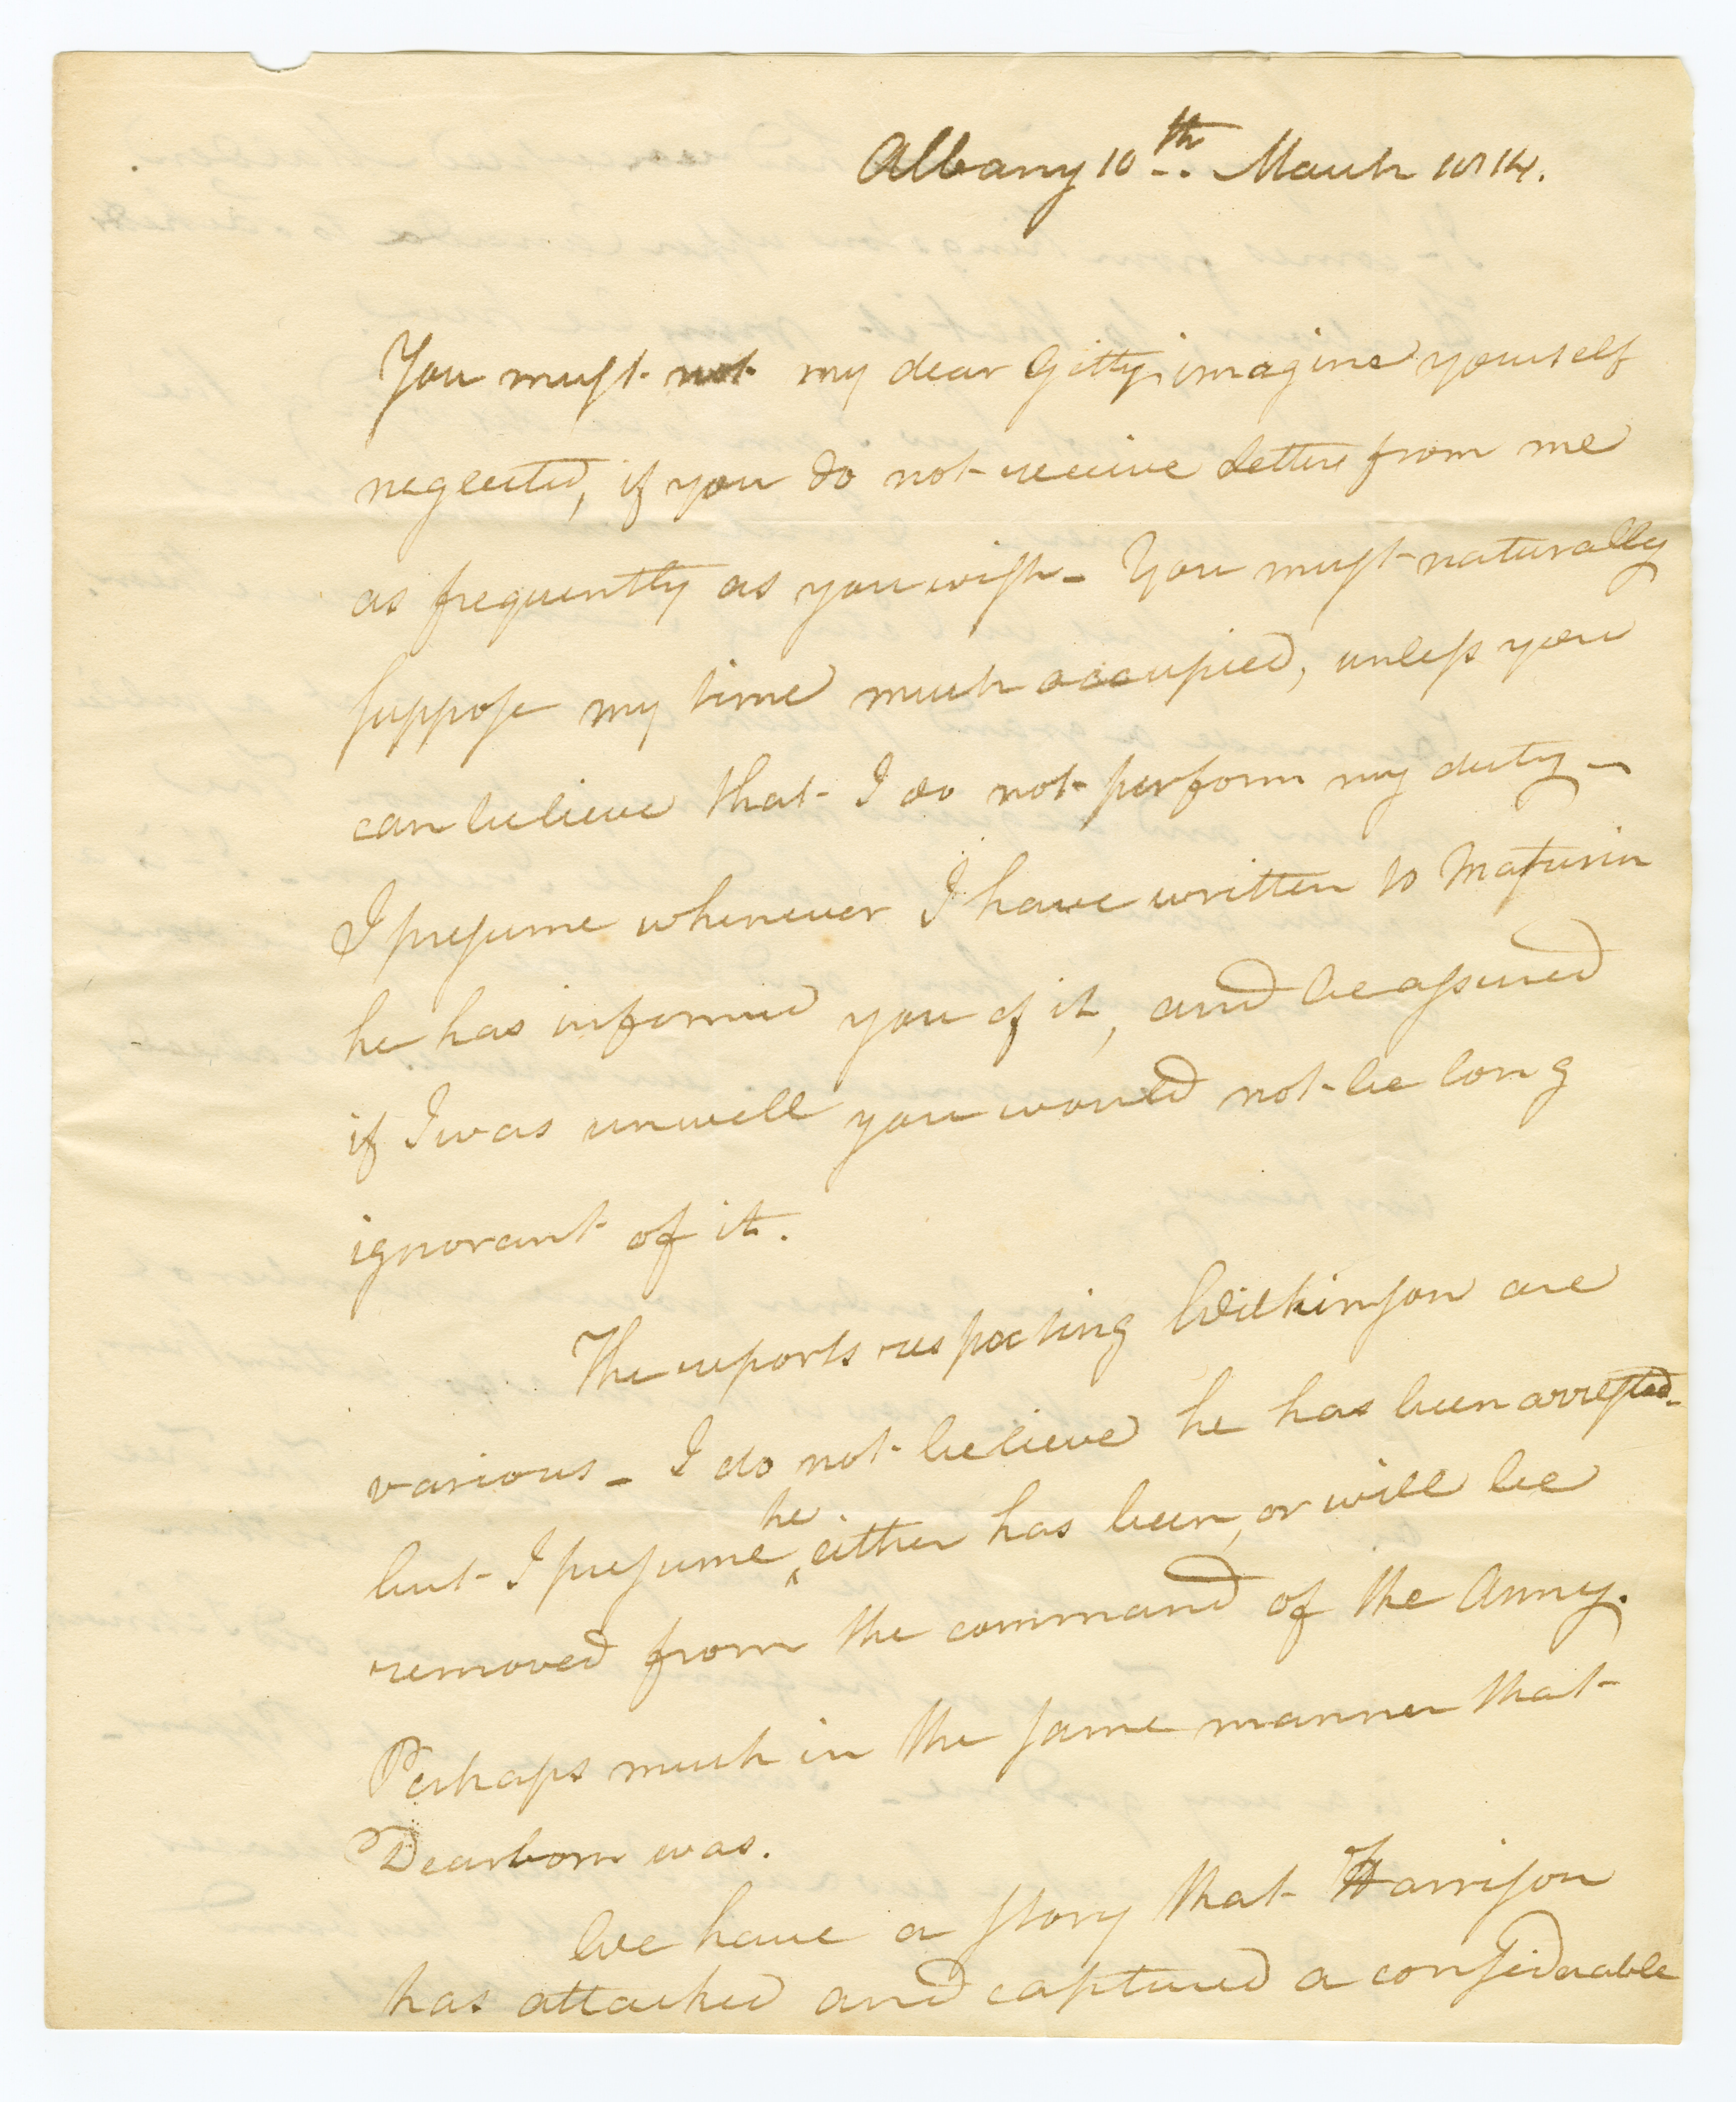 Albany 10th. March 1814.
You must not my dear Gitty, imagine yourself
neglected, if you do not receive letters from me
as frequently as you wish - You must naturally
suppose my time much occupied, unless you
can believe that I do not perform my duty -
I presume whenever I have written to Maturin
he has informed you of it, and be assured
if I was unwell you would not be long
ignorant of it.
The reports respecting Wilkinson are
various - I do not believe he has been arrested -
he
but I presume ^ either has been, or will be
removed from the command of the Army.
Perhaps much in the same manner that
Dearborn was.
We have a story that Harrison
has attacked and captured a considerable